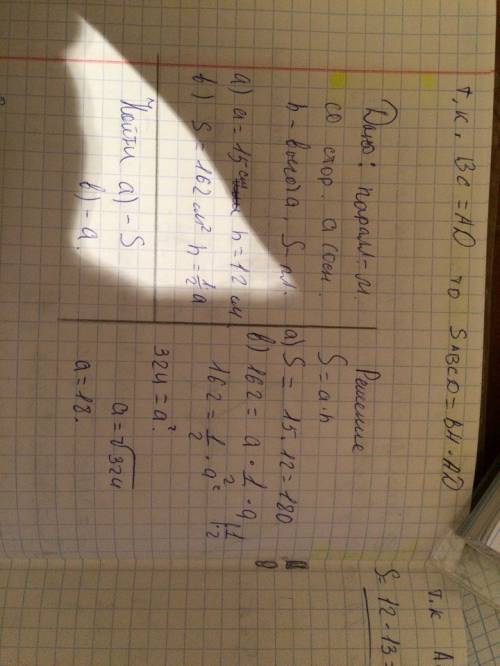 т.к. BC = AD то SABCD = BH · AD
Дано: паралл-м
со стор. a
h = высота, S пл.
а) a = 15 см h = 12 см.
в) S = 162 см² h = 1/2 a
Найти а) - S
в) - a.
Решение
S = a · h
а) S = 15 · 12 = 180
в) 162 = a · 1/2 · a
162 = 1/2 · a² | · 2
324 = a²
a = √324
a = 18.
т.к A
S = 12 · 13 =